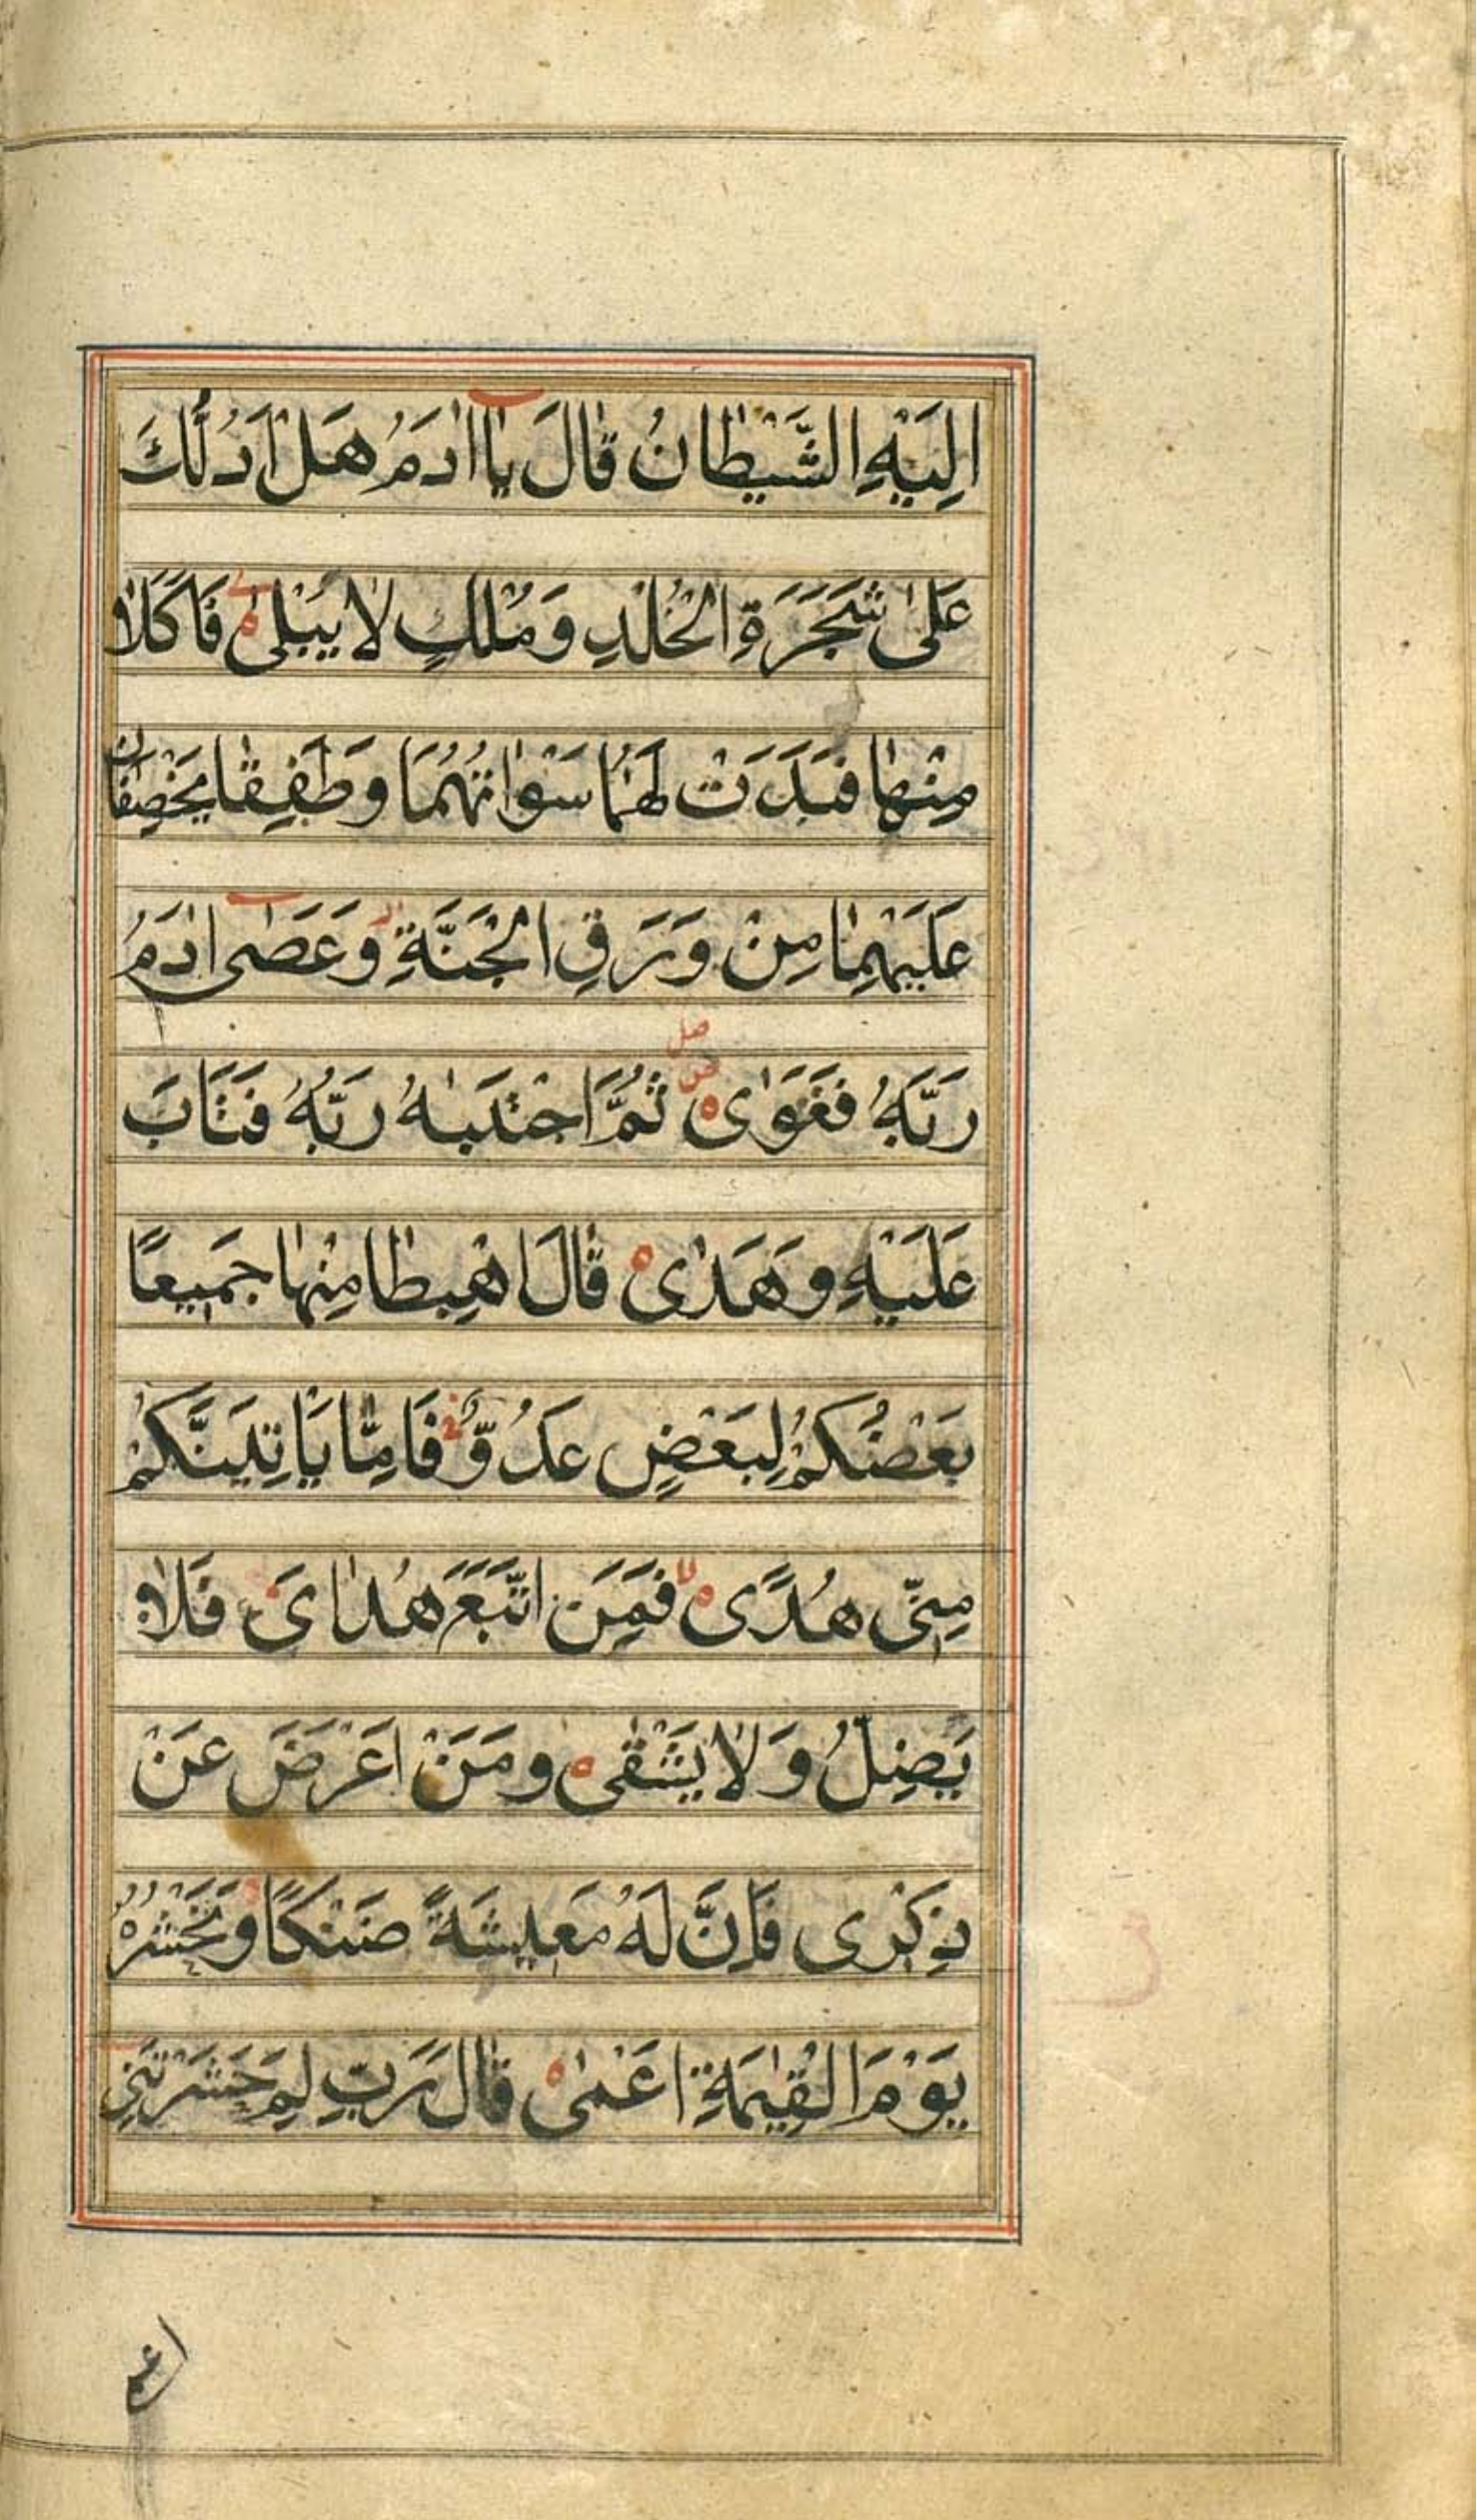 اِلَيْهِ الشَّيْطَانُ قَالَ يَاادَمُ هَلْ اَدُلُّكَ
عَلٰى شَجَرَةِ الْخُلْدِ وَمُلْكٍ لَا يَبْلٰى فَاَكَلَا
مِنْهَا فَبَدَتْ لَهُمَا سَوْاتُهُمَا وَطَفِقَا يَخْصِفَانِ
عَلَيْهِمَا مِنْ وَرَقِ الْجَنَّةِ وَعَصٰى ادَمُ
رَبَّهُ فَغَوٰى ثُمَّ اجْتَبٰهُ رَبُّهُ فَتَابَ
عَلَيْهِ وَهَدٰى قَالَ اهْبِطَا مِنْهَا جَمِيعًا
بَعْضُكُمْ لِبَعْضٍ عَدُوٌّ فَاِمَّا يَاْتِيَنَّكُمْ
مِنِّى هُدًى فَمَنِ اتَّبَعَ هُدَاىَ فَلَا
يَضِلُّ وَلَا يَشْقٰى وَمَنْ اَعْرَضَ عَنْ
ذِكْرِى فَاِنَّ لَهُ مَعِيشَةً ضَنْكًا وَنَحْشُرُهُ
يَوْمَ الْقِيٰمَةِ اَعْمٰى قَالَ رَبِّ لِمَ حَشَرْتَنِى